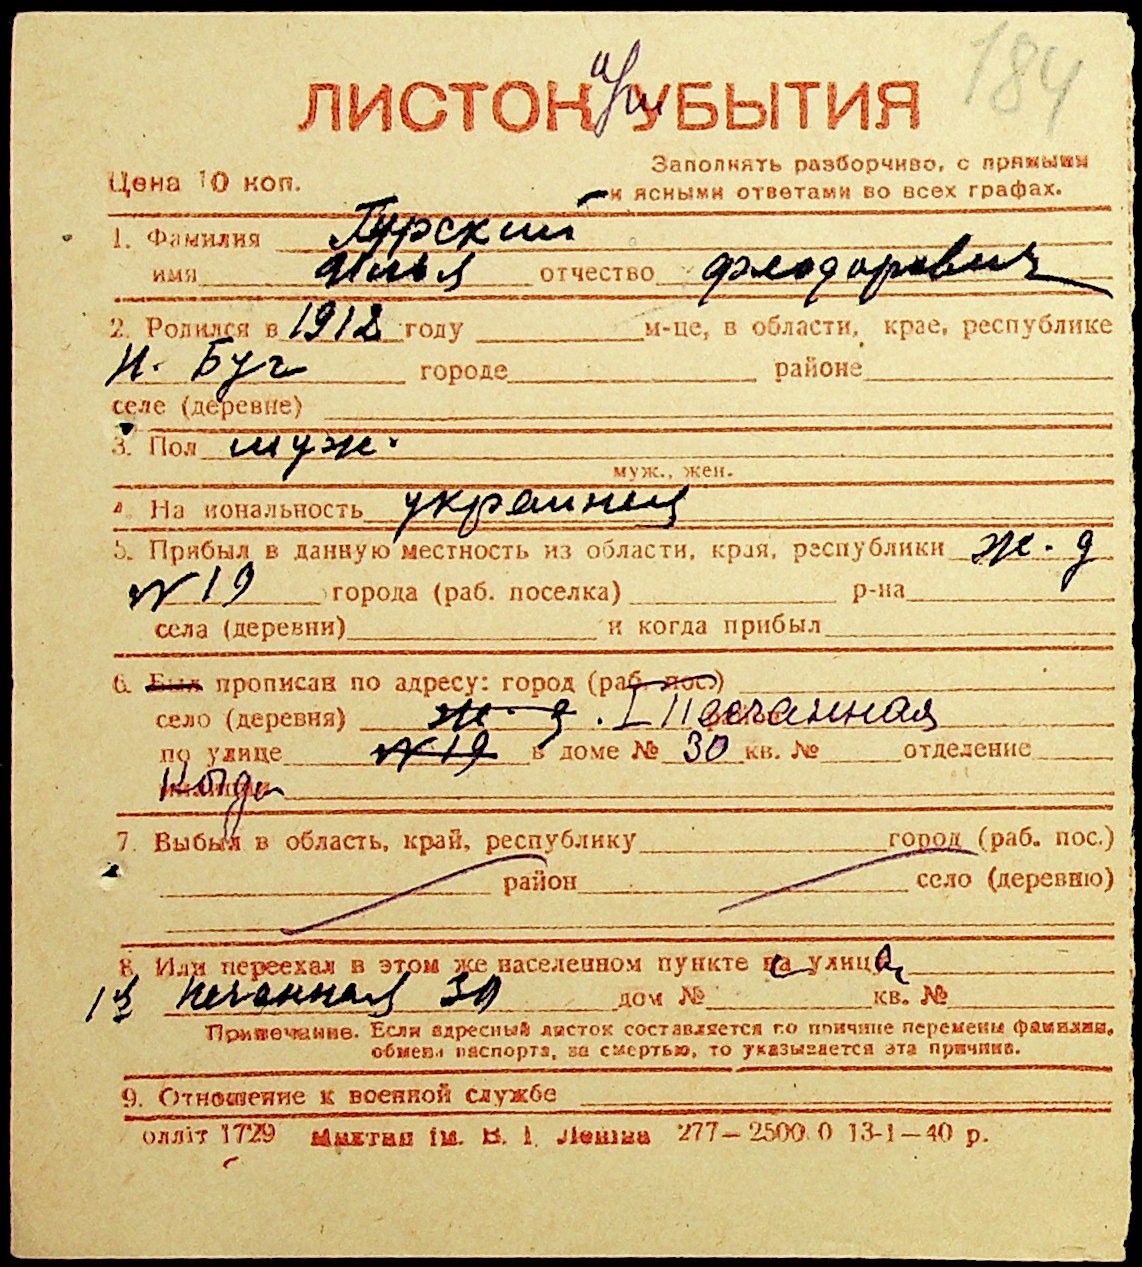 184
ЛИСТОК УБЫТИЯ
Цена 10 коп.
Заполнять разборчиво, с прямыми
и ясными ответами во всех графах.
1. Фамилия Гурский
имя Илья отчество Феодорович
2. Родился в 1912 году м-це, в области, крае, республике
Н. Буг городе районе
селе (деревне)
3. Пол муж.
муж., жен.
4. На иональность украинец
5. Прибыл в данную местность из области, края, республики ж. д
№ 19 города (раб. поселка) р-на
села (деревни) и когда прибыл
6. Был прописан по адресу: город (раб. пос.)
село (деревня) ж. д. I Песчанная
по улице № 19 в доме № 30 кв. № отделение
милиции
7. Выбыл в область, край, республику город (раб. пос.)
район село (деревню)
8. Или переехал в этом же населенном пункте на улицу
1я Печанная 30 дом № кв. №
Примечание. Если адресный листок составляется по причине перемены фамилии,
обмена паспорта, за смертью, то указывается эта причина.
9. Отношение к военной службе
олліт 1729 Миктип ім. В. І. Леніна 277—2500 0 13-1—40 р.